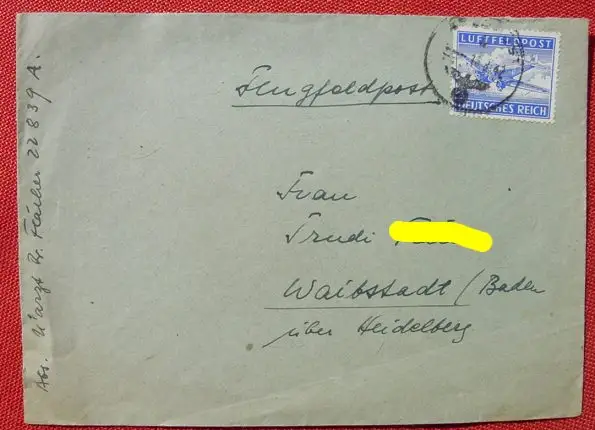 LUFTFELDPOST
DEUTSCHES REICH
Flugfeldpost
Frau
Trudi
Waibstadt / Baden
über Heidelberg
Abs. U'arzt Dr. 22839 A.